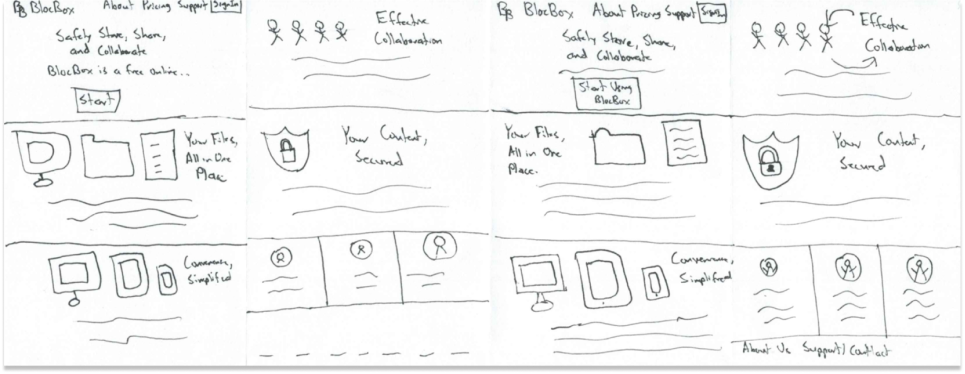 BB BlocBox About Pricing Support Sign In
Safely Store, Share,
and Collaborate
BlocBox is a free online..
Start
Your Files,
All in One
Place.
Convenience,
Simplified
Effective
Collaboration
Your Content,
Secured
BB BlocBox About Pricing Support Sign In
Safely Store, Share,
and Collaborate
Start Using
BlocBox
Your Files,
All in One
Place.
Convenience,
Simplified
Effective
Collaboration
Your Content,
Secured
About Us Support/Contact